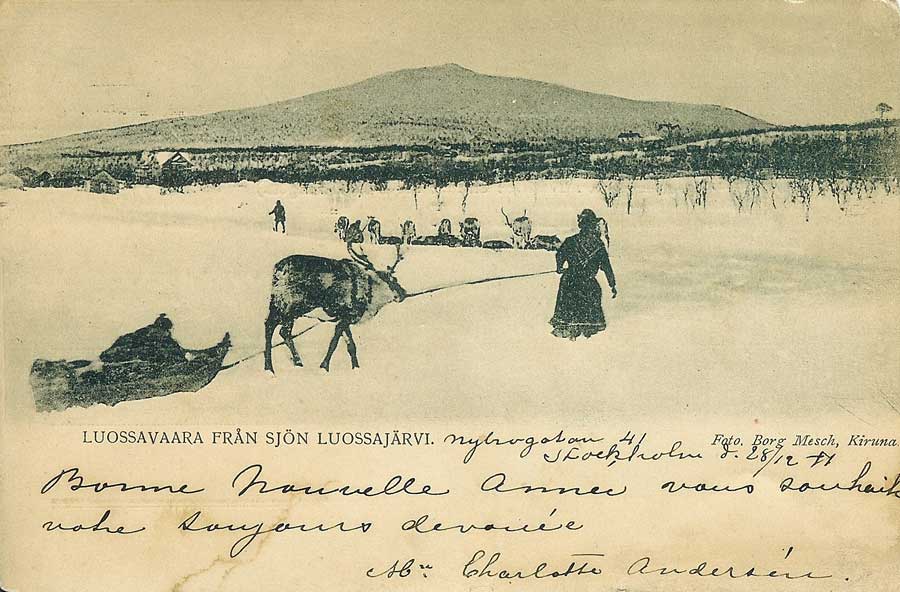 LUOSSAVAARA FRÅN SJÖN LUOSSAJÄRVI.
Nybrogatan 41
Foto. Borg Mesch, Kiruna.
Stockholm d. 28/12
Bonne Nouvelle Annee vous souhaite
votre toujours devouée
Charlotte Andersén.